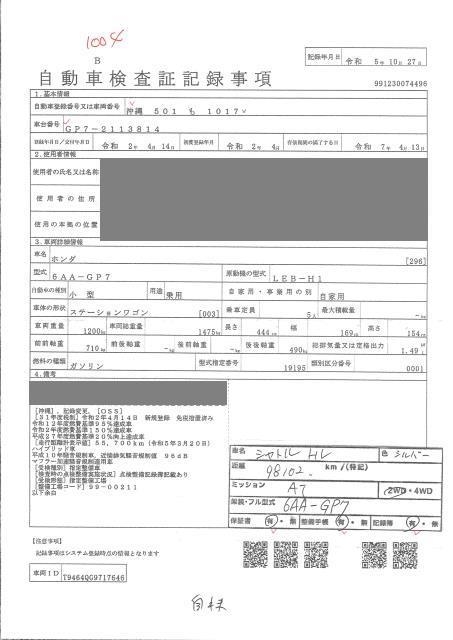 1004
B
記録年月日 令和 5年 10月 27日
自動車検査証記録事項
991230074496
1. 基本情報
自動車登録番号又は車両番号 沖縄 501 も 1017
車台番号 GP7-2113814
登録年月日/交付年月日 令和 2年 4月 14日 初度登録年月 令和 2年 4月 有効期間の満了する日 令和 7年 4月 13日
2. 使用者情報
使用者の氏名又は名称
使用者の住所
使用の本拠の位置
3. 車両詳細情報
車名 ホンダ [296]
型式 6AA-GP7 原動機の型式 LEB-H1
自動車の種別 小型 用途 乗用 自家用・事業用の別 自家用
車体の形状 ステーションワゴン [003] 乗車定員 5人 最大積載量 -kg
車両重量 1200kg 車両総重量 1475kg 長さ 444cm 幅 169cm 高さ 154cm
前前軸重 710kg 前後軸重 -kg 後前軸重 -kg 後後軸重 490kg 総排気量又は定格出力 1.49L
燃料の種類 ガソリン 型式指定番号 19195 類別区分番号 0001
4. 備考
[沖縄], 記録変更, [OSS]
[31年度税制] 令和2年4月14日 新規登録 免税措置済み
令和12年度燃費基準95%達成車
令和2年度燃費基準150%達成車
平成27年度燃費基準20%向上達成車
[走行距離計表示値] 55,700km (令和5年3月20日)
ハイブリッド車
平成10年騒音規制車, 近接排気騒音規制値 96dB
マフラー加速騒音規制適用車
[受検種別] 指定整備車
[検査時の点検整備実施状況] 点検整備記録簿記載あり
[受検形態] 指定整備工場
[整備工場コード] 99-00211
以下余白
車名 シャトル HV 色 シルバー
距離 98102 km/(特記)
ミッション AT 2WD・4WD
架装・フル型式 6AA-GP7
保証書 有・無 整備手帳 有・無 記録簿 有・無
[注意事項]
記録事項はシステム登録時点の情報となります
車両ID T9464QG9717646